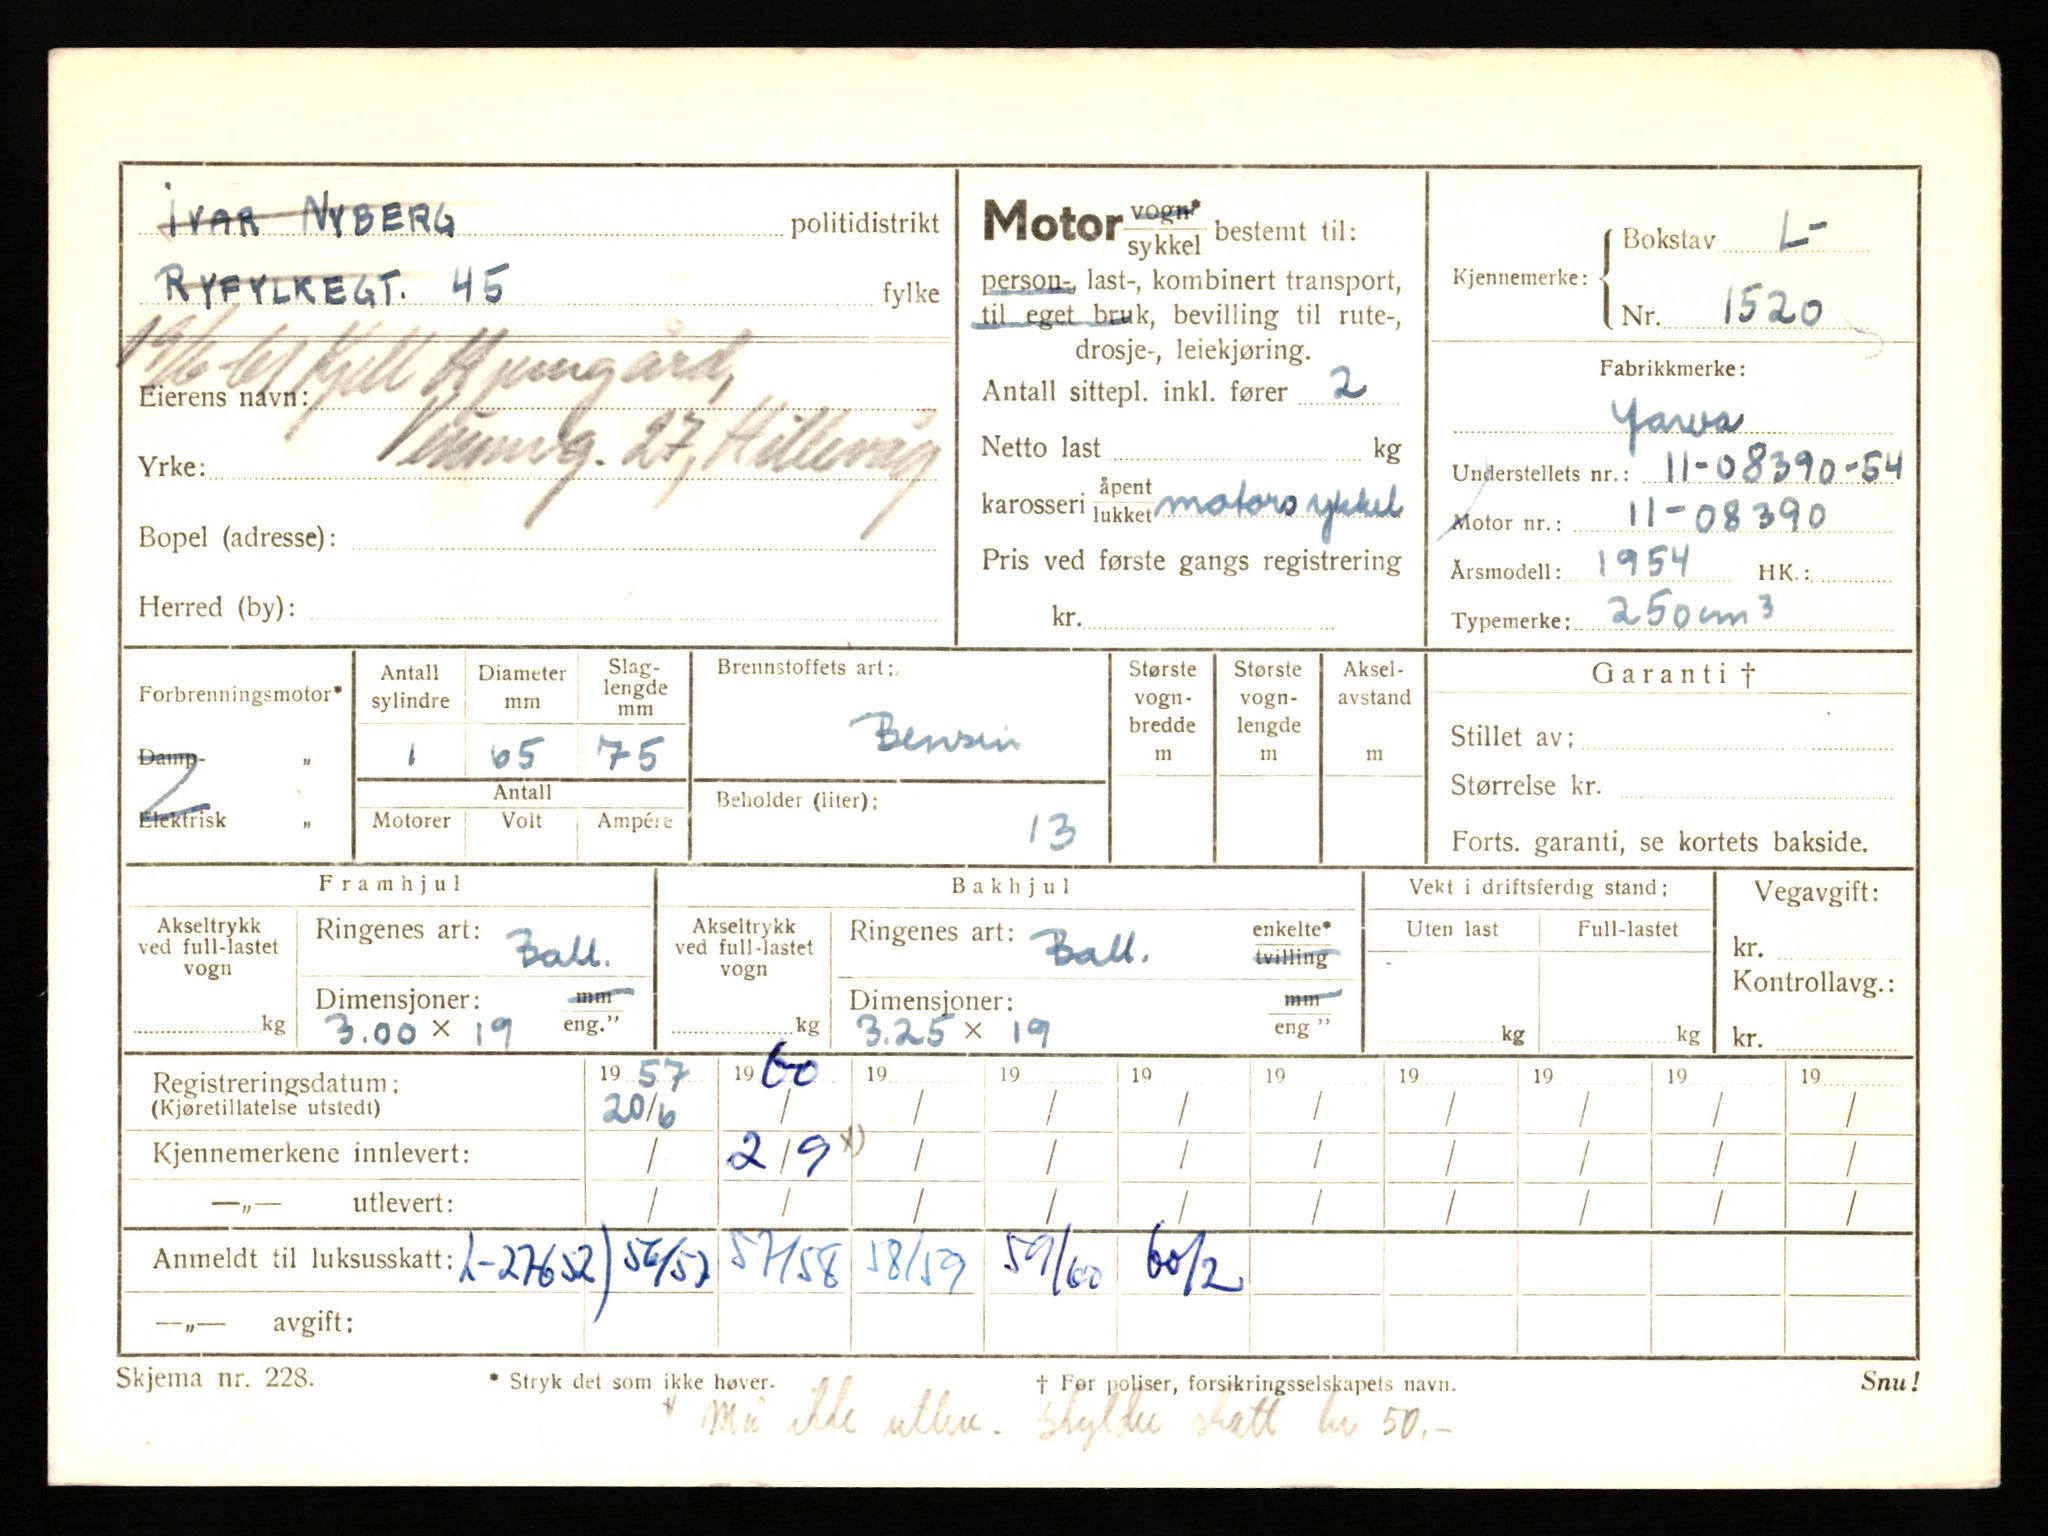 IVAR NYBERG politidistrikt
RYFYLKEGT. 45 fylke
Kjell
Eierens navn:
27, Hillevåg
Yrke:
Bopel (adresse):
Herred (by):
Motor vogn*/sykkel bestemt til:
person-, last-, kombinert transport,
til eget bruk, bevilling til rute-,
drosje-, leiekjøring.
Antall sittepl. inkl. fører 2
Netto last kg
karosseri åpent/lukket motorsykkel
Pris ved første gangs registrering
kr.
Kjennemerke: Bokstav L-
Nr. 1520
Fabrikkmerke:
Yawa
Understellets nr.: 11-08390-54
Motor nr.: 11-08390
Årsmodell: 1954 HK.:
Typemerke: 250 cm³
Forbrenningsmotor*
Damp- „
Elektrisk „
Antall sylindre
Diameter mm
Slag-lengde mm
1 65 75
Antall
Motorer Volt Ampére
Brennstoffets art:
Bensin
Beholder (liter):
13
Største vogn-bredde m
Største vogn-lengde m
Aksel-avstand m
Garanti †
Stillet av:
Størrelse kr.
Forts. garanti, se kortets bakside.
Framhjul
Akseltrykk ved full-lastet vogn
kg
Ringenes art: Ball.
Dimensjoner: mm/eng."
3.00 × 19
Bakhjul
Akseltrykk ved full-lastet vogn
kg
Ringenes art: Ball. enkelte*/tvilling
Dimensjoner: mm/eng "
3.25 × 19
Vekt i driftsferdig stand:
Uten last Full-lastet
kg kg
Vegavgift:
kr.
Kontrollavg.:
kr.
Registreringsdatum: 19 57 19 60 19 19 19 19 19 19 19 19
(Kjøretillatelse utstedt) 20/6 / / / / / / / / /
Kjennemerkene innlevert: / 2/9 x) / / / / / / / /
—„— utlevert: / / / / / / / / / /
Anmeldt til luksusskatt: L-27652) 56/57 57/58 58/59 59/60 60/2
—„— avgift:
Skjema nr. 228. * Stryk det som ikke høver. † For poliser, forsikringsselskapets navn. Snu!
Må ikke utlev. skylder skatt kr 50.-